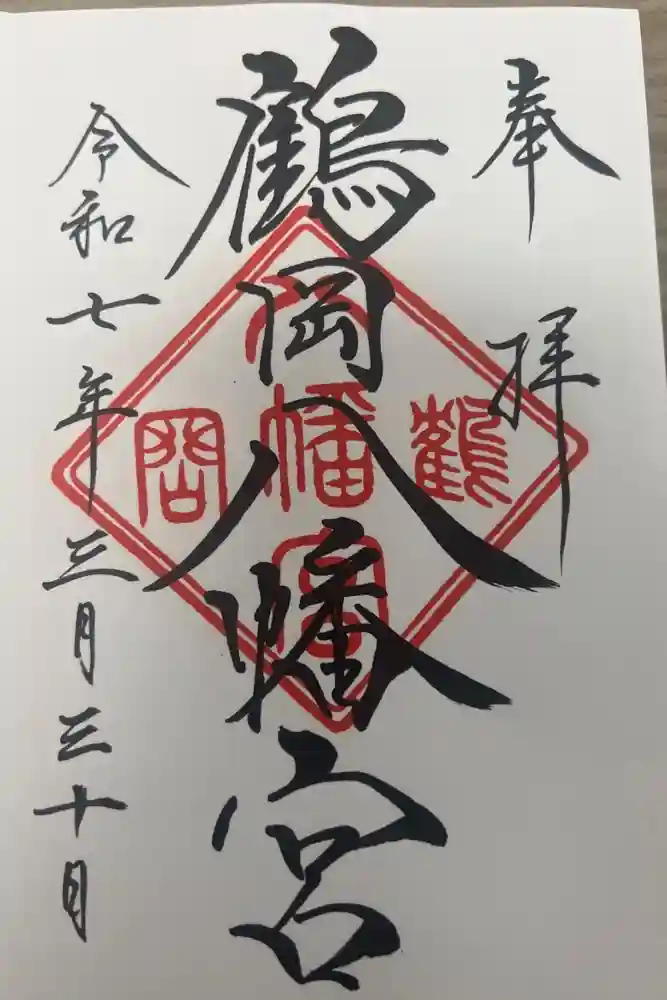 奉拝
鶴岡八幡宮
令和七年三月三十日
鶴
八幡宮
岡